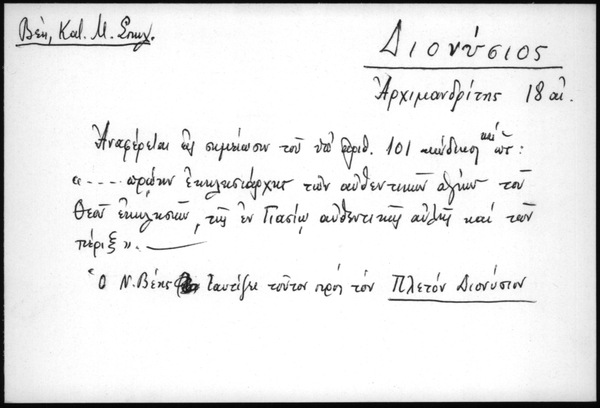 Βέη, Κατ. Μ. Σπηλ.
Διονύσιος
Ἀρχιμανδρίτης 18 αἰ.
Ἀναφέρεται εἰς σημείωσιν τοῦ ὑπ' ἀριθ. 101 κώδικος καὶ ὡς:
«.... πρώην ἐκκλησιάρχης τῶν αὐθεντικῶν ἁγίων τοῦ
Θεοῦ ἐκκλησιῶν, τῆς ἐν Γιασίῳ αὐθεντικῆς αὐλῆς καὶ τῶν
πέριξ».
Ὁ Ν. Βέης ταυτίζει τοῦτον πρὸς τὸν Πλετόν Διονύσιον